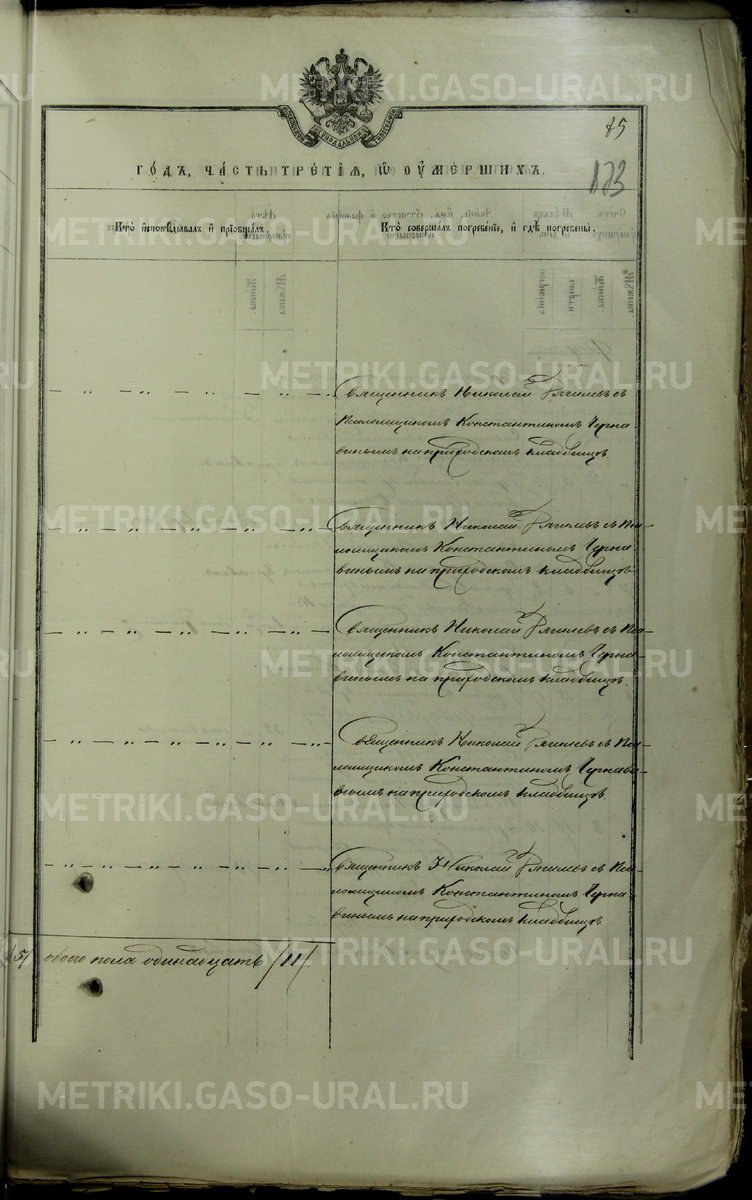 METRIKI.GASO-URAL.RU
85
173
ГОДЪ, ЧАСТЬ ТРЕТІЯ, Ѿ ОУМЕРШИХЪ.
Кто исповѣдывалъ и пріобщалъ.
Кто совершалъ погребеніе, и гдѣ погребены.
METRIKI.GASO-URAL.RU
— „ — „ — „ — „ —
Священникъ Николай
Псаломщикомъ Константиномъ Черна-
винымъ на приходскомъ кладбищѣ.
METRIKI.GASO-URAL.RU
— „ — „ — „ — „ —
Священникъ Николай съ Пса-
ломщикомъ Константиномъ Черна-
винымъ на приходскомъ кладбищѣ
— „ — „ — „ — „ —
Священникъ Николай съ Пса-
ломщикомъ Константиномъ Черна-
винымъ на приходскомъ кладбищѣ.
METRIKI.GASO-URAL.RU
— „ — „ — „ — „ —
Священникъ Николай съ Пса-
ломщикомъ Константиномъ Черна-
винымъ на приходскомъ кладбищѣ.
METRIKI.GASO-URAL.RU
— „ — „ — „ — „ —
Священникъ Николай съ Пса-
ломщикомъ Константиномъ Черна-
винымъ на приходскомъ кладбищѣ
/5/ обоего пола одинадцать /11/.
METRIKI.GASO-URAL.RU
METRIKI.GASO-URAL.RU